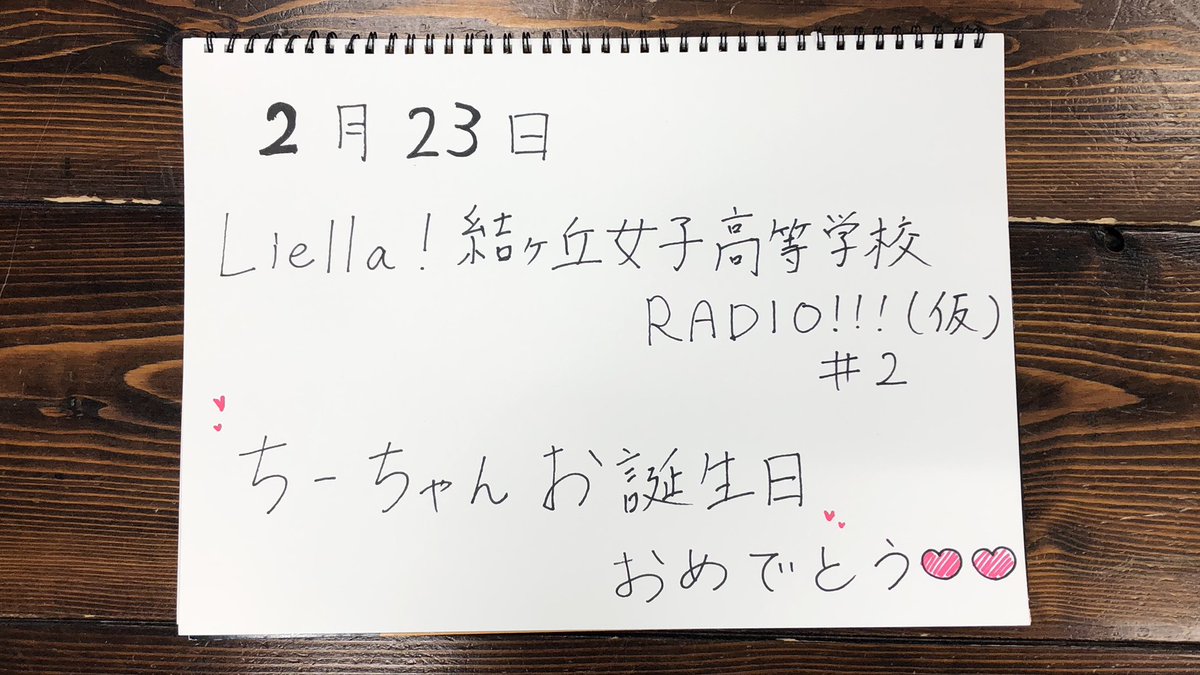 2月23日
Liella!結ヶ丘女子高等学校
RADIO!!!(仮)
#2
ちーちゃんお誕生日
おめでとう